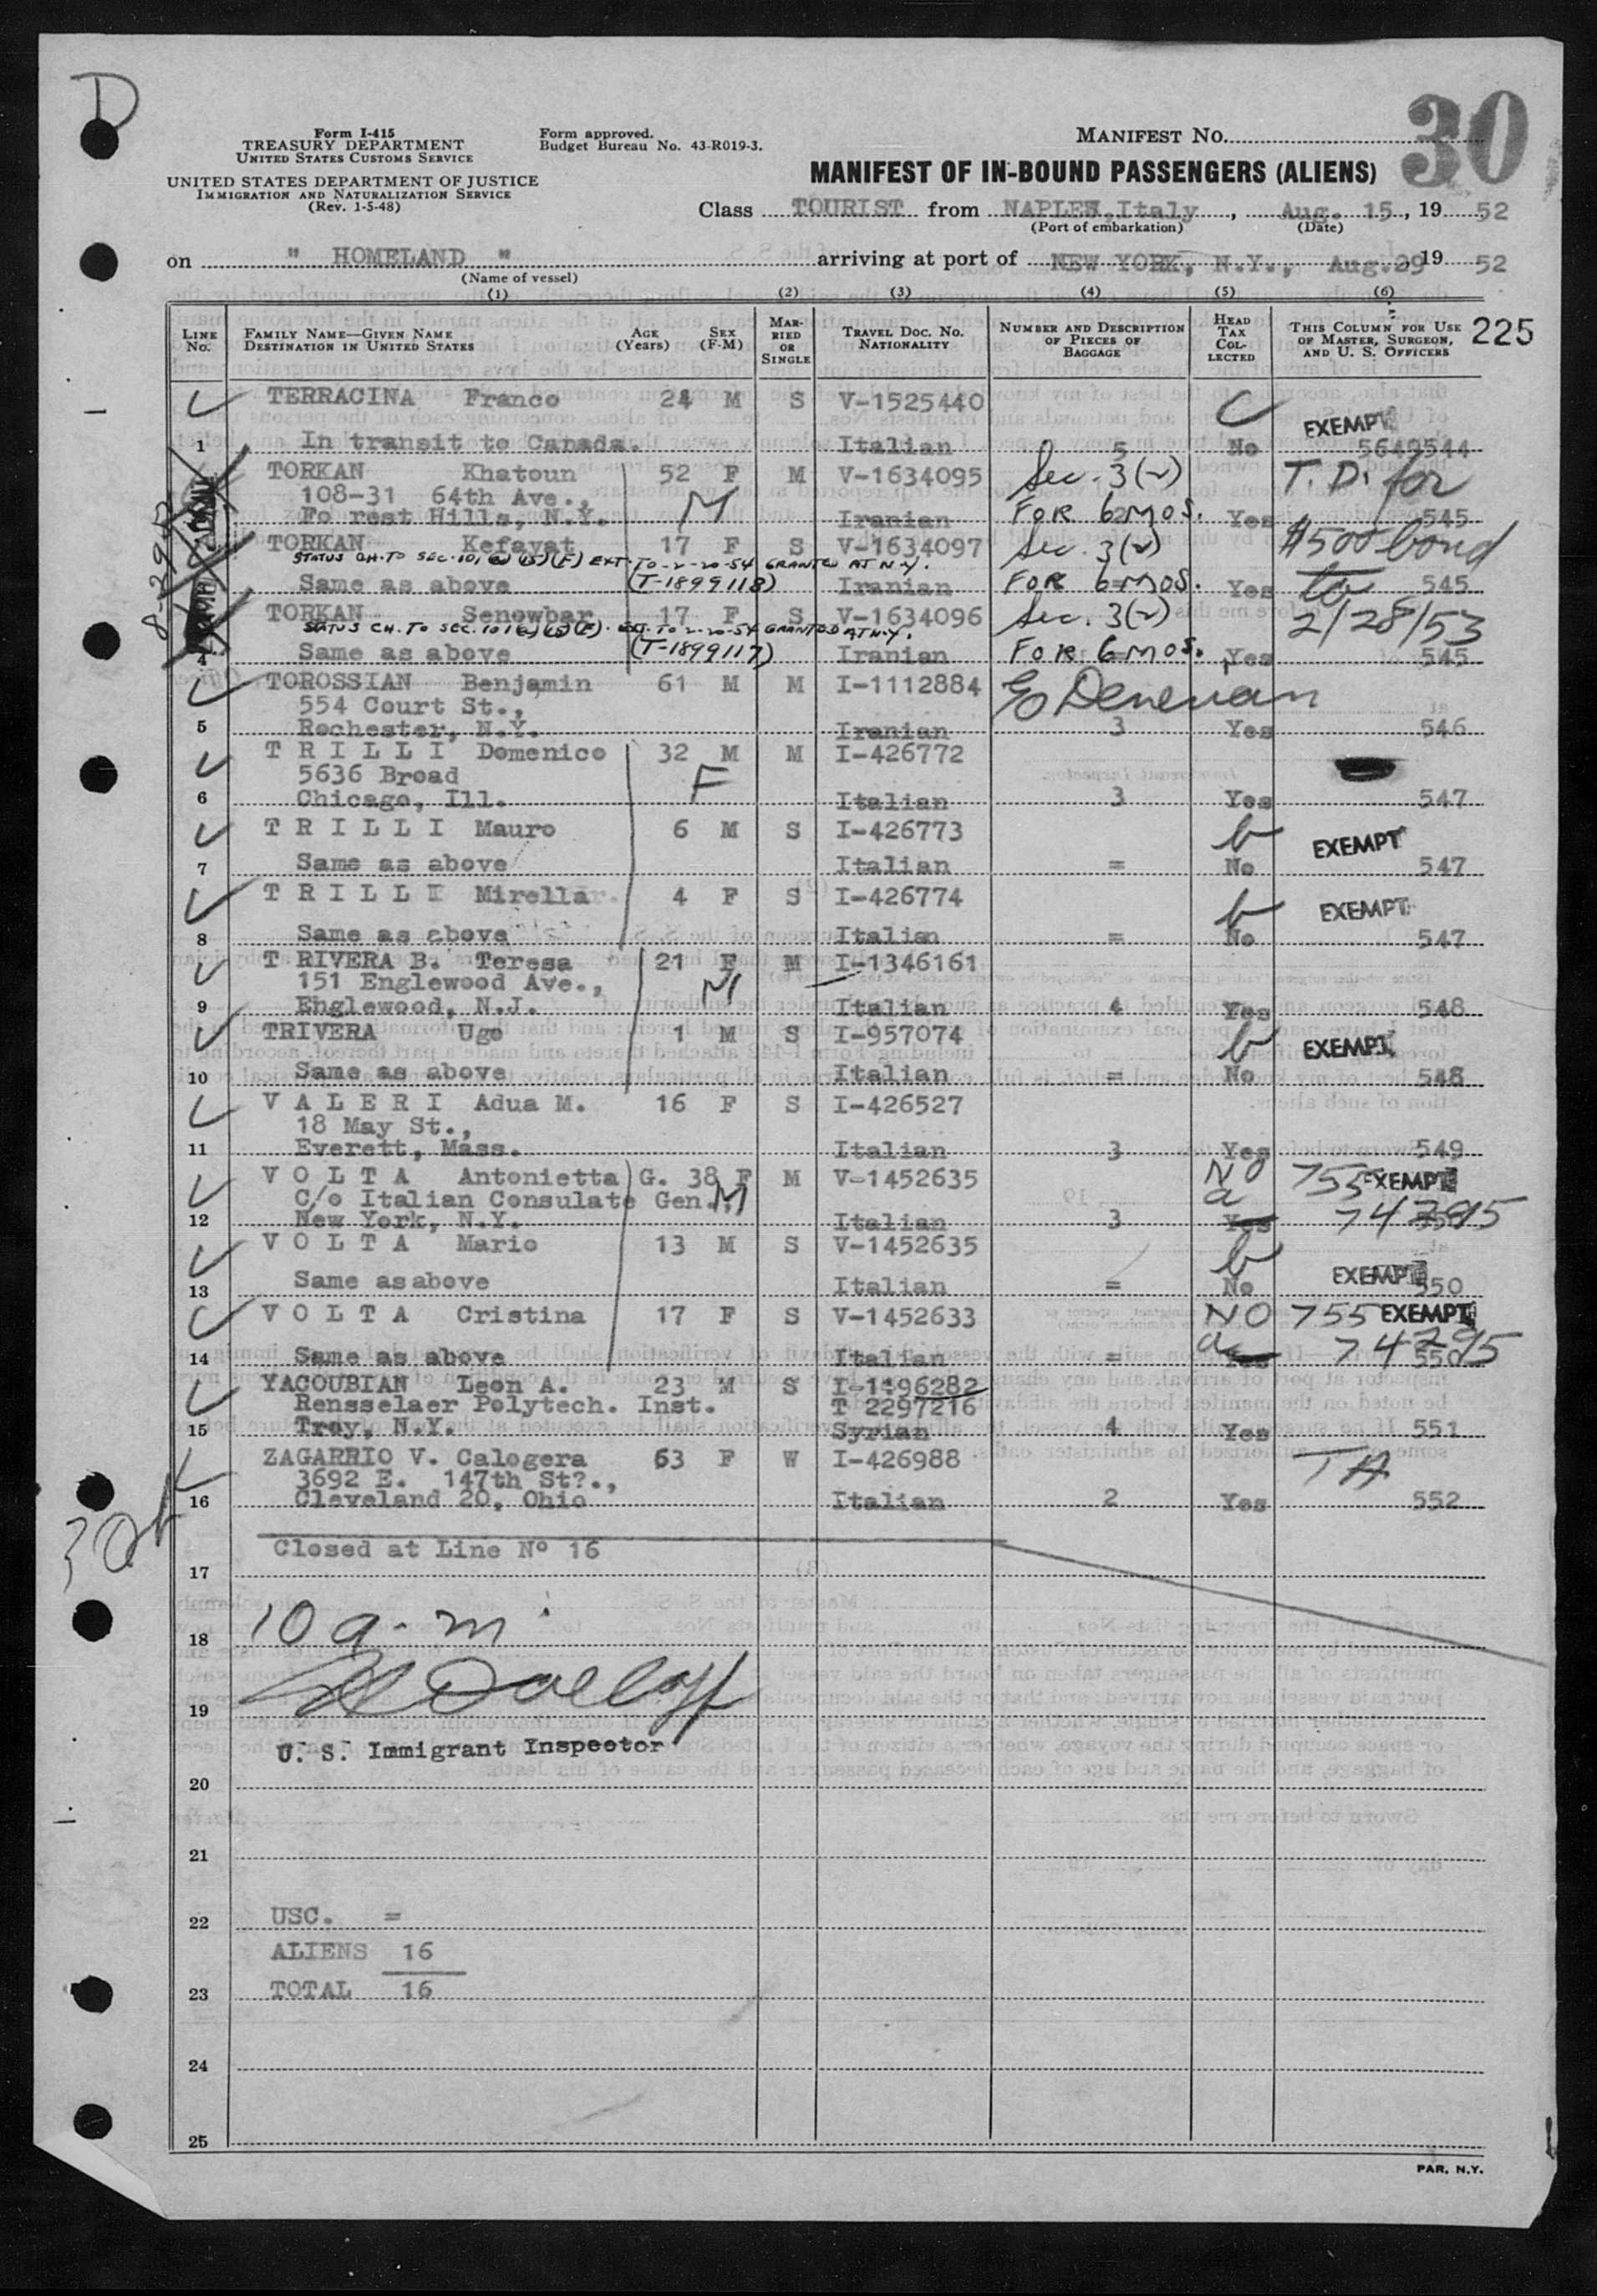 D
30
Form I-415
TREASURY DEPARTMENT
UNITED STATES CUSTOMS SERVICE
UNITED STATES DEPARTMENT OF JUSTICE
IMMIGRATION AND NATURALIZATION SERVICE
(Rev. 1-5-48)
Form approved.
Budget Bureau No. 43-R019-3.
MANIFEST NO.
MANIFEST OF IN-BOUND PASSENGERS (ALIENS)
Class TOURIST from NAPLES, Italy, Aug. 15, 19 52
(Port of embarkation) (Date)
on " HOMELAND " arriving at port of NEW YORK, N.Y., Aug.29 19 52
(Name of vessel)
(1) (2) (3) (4) (5) (6)
LINE NO. FAMILY NAME—GIVEN NAME DESTINATION IN UNITED STATES AGE (YEARS) SEX (F-M) MARRIED OR SINGLE TRAVEL DOC. NO. NATIONALITY NUMBER AND DESCRIPTION OF PIECES OF BAGGAGE HEAD TAX COLLECTED THIS COLUMN FOR USE OF MASTER, SURGEON, AND U. S. OFFICERS 225
TERRACINA Franco 24 M S V-1525440 C EXEMPT
1 In transit to Canada. Italian 5 No 5649544
TORKAN Khatoun 52 F M V-1634095 Sec. 3(2) T. D. for
108-31 64th Ave., M
Fo rest Hills, N.Y. Iranian FOR 6 MOS. Yes 545
TORKAN Kefayat 17 F S V-1634097 Sec. 3(2) $500 bond
STATUS CH. TO SEC. 101(a)(15)(F) EXT. TO-2-20-54 GRANTED AT N.Y.
Same as above (T-1899118) Iranian FOR 6 MOS. Yes to 545
TORKAN Senowbar 17 F S V-1634096 Sec. 3(2) 2/28/53
STATUS CH. TO SEC. 101(a)(15)(F). EXT. TO 2-20-54 GRANTED AT N.Y.
4 Same as above (T-1899117) Iranian FOR 6 MOS. Yes 545
TOROSSIAN Benjamin 61 M M I-1112884
554 Court St.,
5 Rochester, N.Y. Iranian 3 Yes 546
T R I L L I Domenico 32 M M I-426772
5636 Broad F
6 Chicago, Ill. Italian 3 Yes 547
T R I L L I Mauro 6 M S I-426773 b EXEMPT
7 Same as above Italian = No 547
T R I L L I Mirella 4 F S I-426774 b EXEMPT
8 Same as above Italian = No 547
T RIVERA B. Teresa 21 F M I-1346161
151 Englewood Ave., M
9 Englewood, N.J. Italian 4 Yes 548
TRIVERA Ugo 1 M S I-957074 b EXEMPT
10 Same as above Italian = No 548
V A L E R I Adua M. 16 F S I-426527
18 May St.,
11 Everett, Mass. Italian 3 Yes 549
V O L T A Antonietta G. 38 F M V-1452635 NO 755 EXEMPT
C/o Italian Consulate Gen., M a
12 New York, N.Y. Italian 3 Yes 74295
V O L T A Mario 13 M S V-1452635 b
13 Same as above Italian = No EXEMPT 550
V O L T A Cristina 17 F S V-1452633 NO 755 EXEMPT
14 Same as above Italian = a Yes 74295 550
YACOUBIAN Leon A. 23 M S I-1496282
Rensselaer Polytech. Inst. T 2297216
15 Troy, N.Y. Syrian 4 Yes 551
ZAGARRIO V. Calogera 63 F W I-426988 TA
3692 E. 147th St?.,
16 Cleveland 20, Ohio Italian 2 Yes 552
Closed at Line Nº 16
17
10 a.m.
18
19
U. S. Immigrant Inspector
20
21
22 USC. =
ALIENS 16
23 TOTAL 16
24
25
PAR, N.Y.